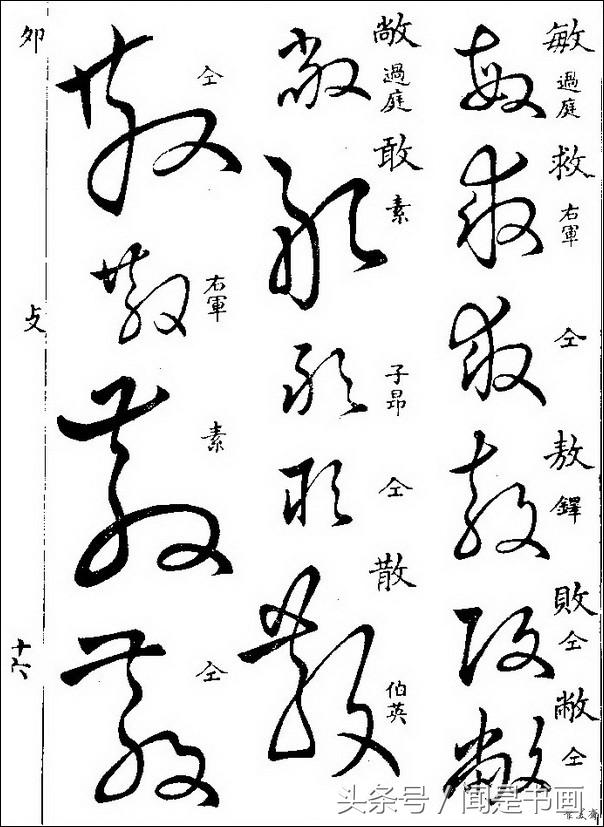 敏 過庭
救 右軍
仝
敖 鐸
敗 仝
敝 仝
敞 過庭
敢 素
子昂
仝
散 伯英
仝
右軍
素
仝
卯
攴
十六
头条号 / 闻是书画